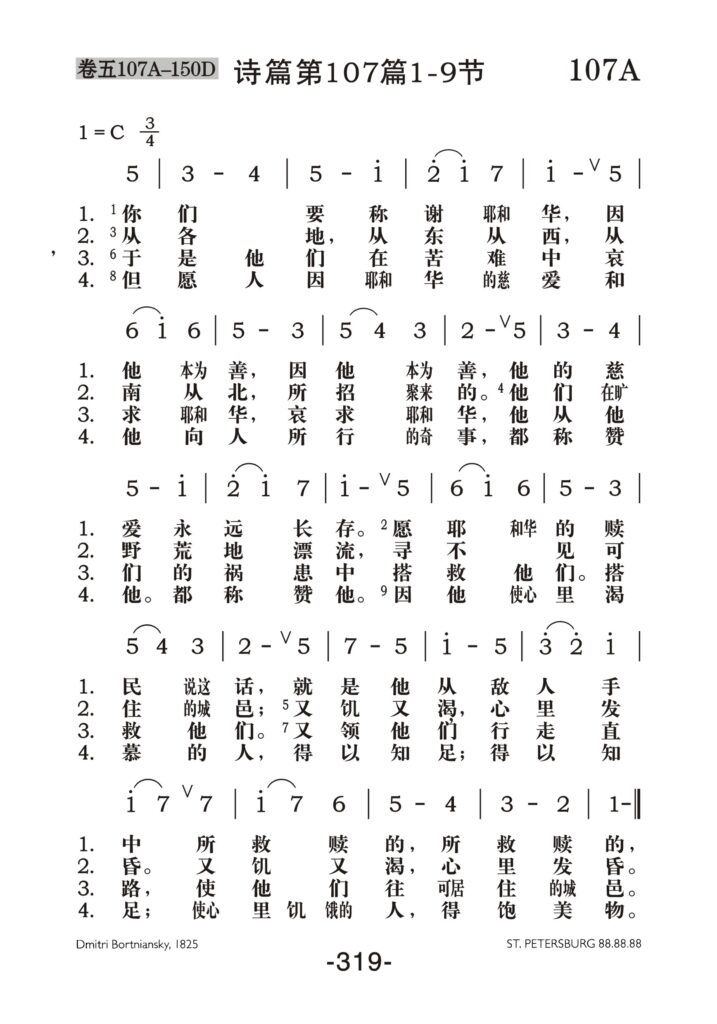 卷五107A–150D 诗篇第107篇1-9节 107A
1=C 3/4
5 | 3 - 4 | 5 - i | 2̇ i 7 | i - ∨ 5 |
1. ¹你们 要称谢耶和华，因
2. ³从各 地，从东从西，从
3. ⁶于是他们在苦难中哀
4. ⁸但愿人因耶和华的慈爱和
6 i 6 | 5 - 3 | 5 4 3 | 2 - ∨ 5 | 3 - 4 |
1. 他本为善，因他本为善，他的慈
2. 南从北，所招聚来的。⁴他们在旷
3. 求耶和华，哀求耶和华，他从他
4. 他向人所行的奇事，都称赞
5 - i | 2̇ i 7 | i - ∨ 5 | 6 i 6 | 5 - 3 |
1. 爱永远长存。²愿耶和华的赎
2. 野荒地漂流，寻不见可
3. 们的祸患中搭救他们。搭
4. 他。都称赞他。⁹因他使心里渴
5 4 3 | 2 - ∨ 5 | 7 - 5 | i - 5 | 3̇ 2̇ i |
1. 民说这话，就是他从敌人手
2. 住的城邑；⁵又饥又渴，心里发
3. 救他们。⁷又领他们行走直
4. 慕的人，得以知足；得以知
i 7 ∨ 7 | i 7 6 | 5 - 4 | 3 - 2 | 1- ‖
1. 中所救赎的，所救赎的，
2. 昏。又饥又渴，心里发昏。
3. 路，使他们往可居住的城邑。
4. 足；使心里饥饿的人，得饱美物。
Dmitri Bortniansky, 1825 ST. PETERSBURG 88.88.88
-319-